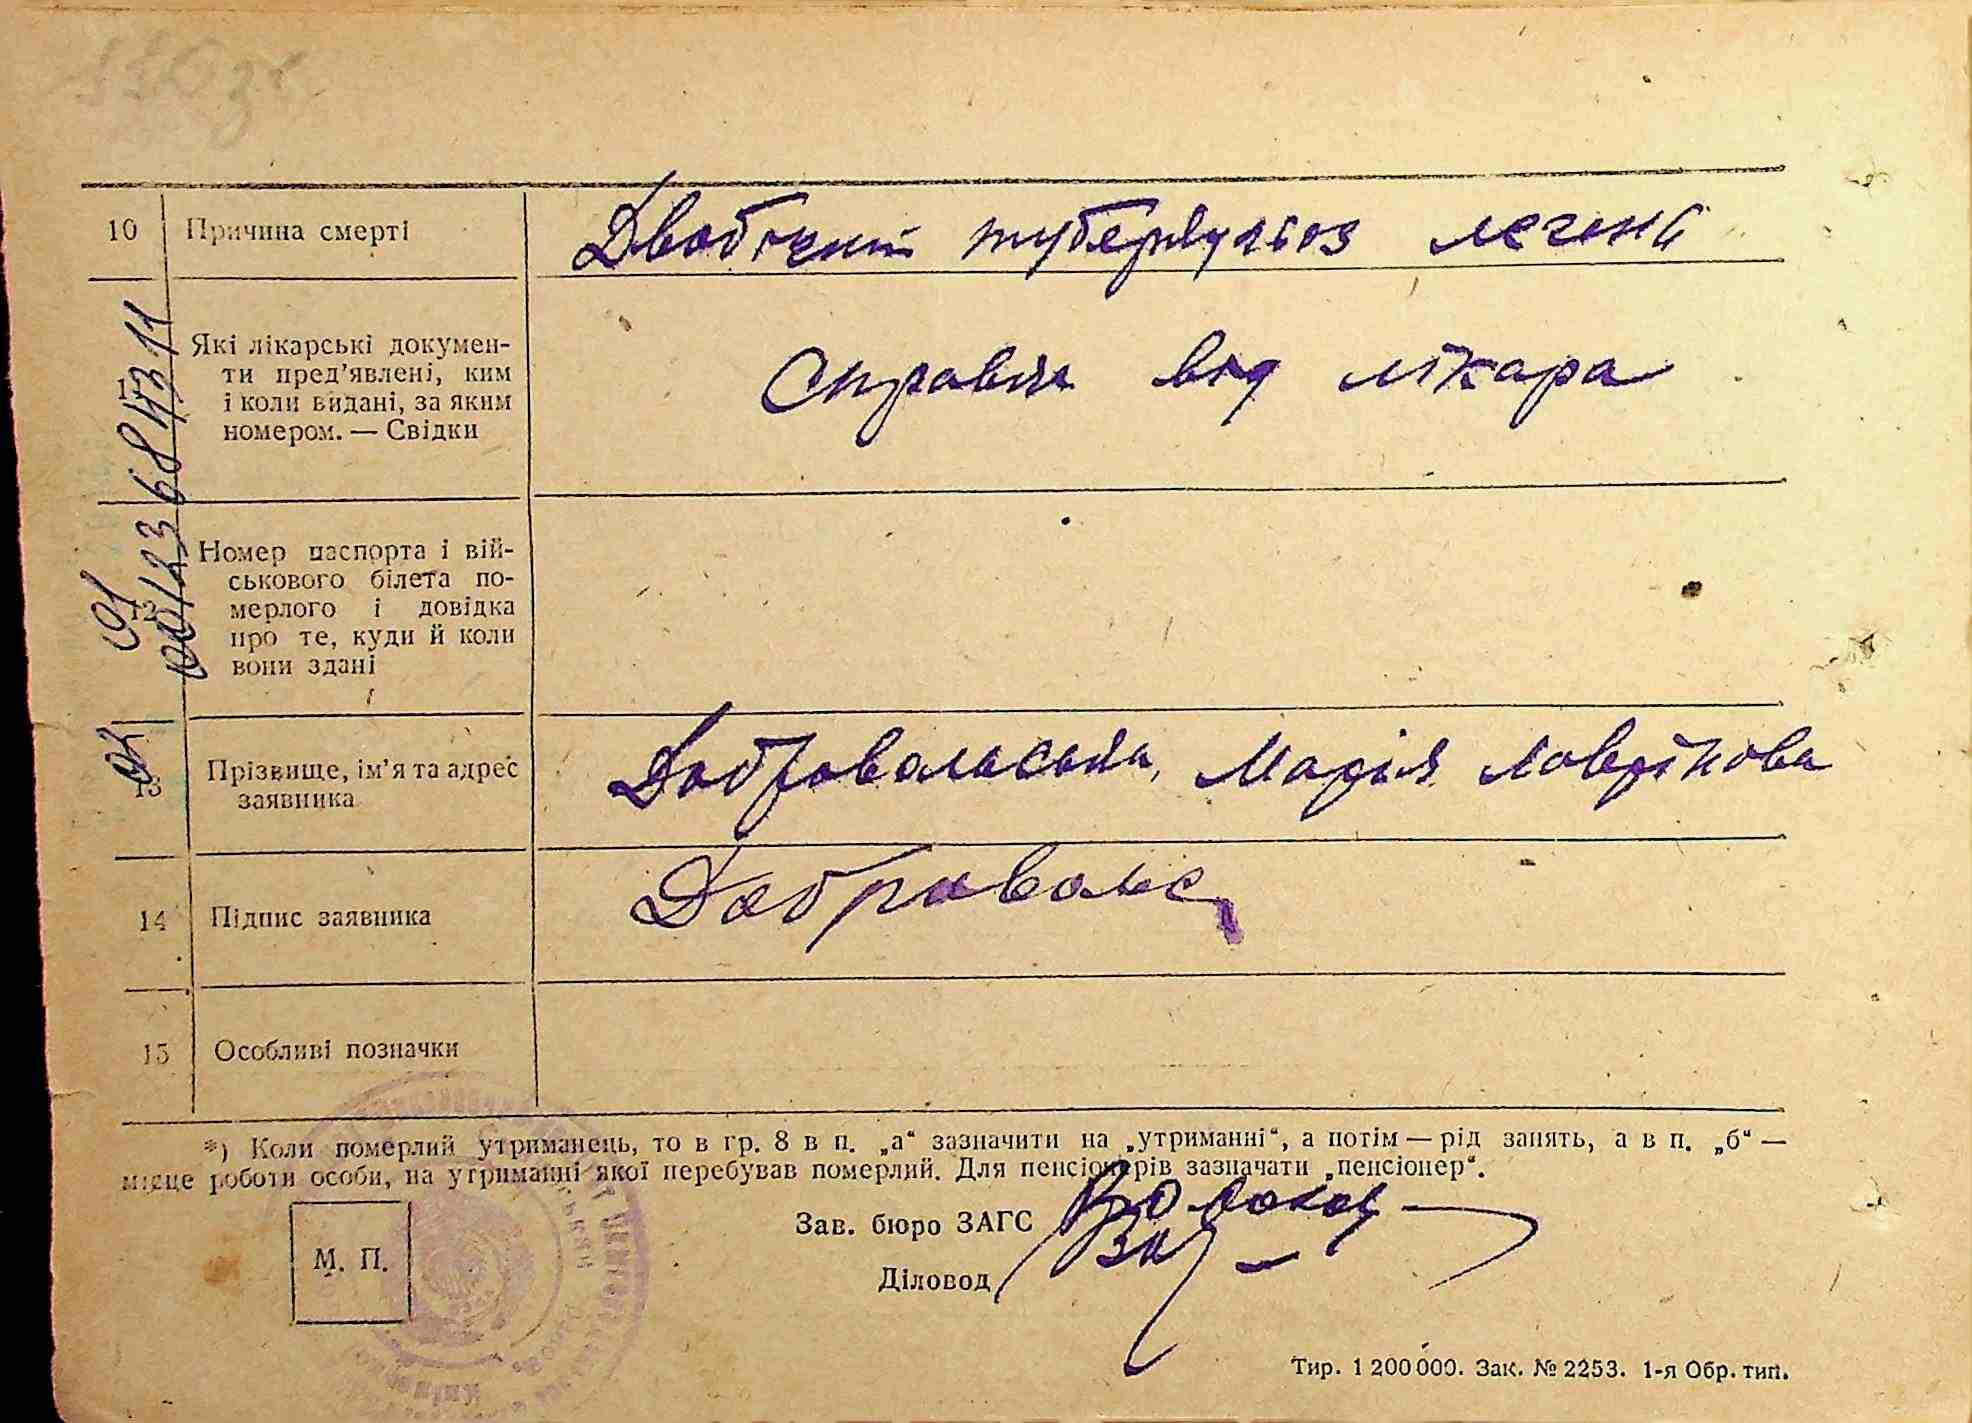 130зв.
10 Причина смерті Двобічний туберкульоз легенів
11 Які лікарські докумен-
ти пред'явлені, ким
і коли видані, за яким
номером. — Свідки
Справка від лікара
12 Номер паспорта і вій-
ськового білета по-
мерлого і довідка
про те, куди й коли
вони здані
13 Прізвище, ім'я та адрес
заявника
Добровольська, Марія
14 Підпис заявника Добровольс
15 Особливі позначки
*) Коли померлий утриманець, то в гр. 8 в п. „а“ зазначити на „утриманні“, а потім — рід занять, а в п. „б“ —
місце роботи особи, на утриманні якої перебував померлий. Для пенсіонерів зазначати „пенсіонер“.
Зав. бюро ЗАГС
М. П.
Діловод
Тир. 1 200 000. Зак. № 2253. 1-я Обр. тип.